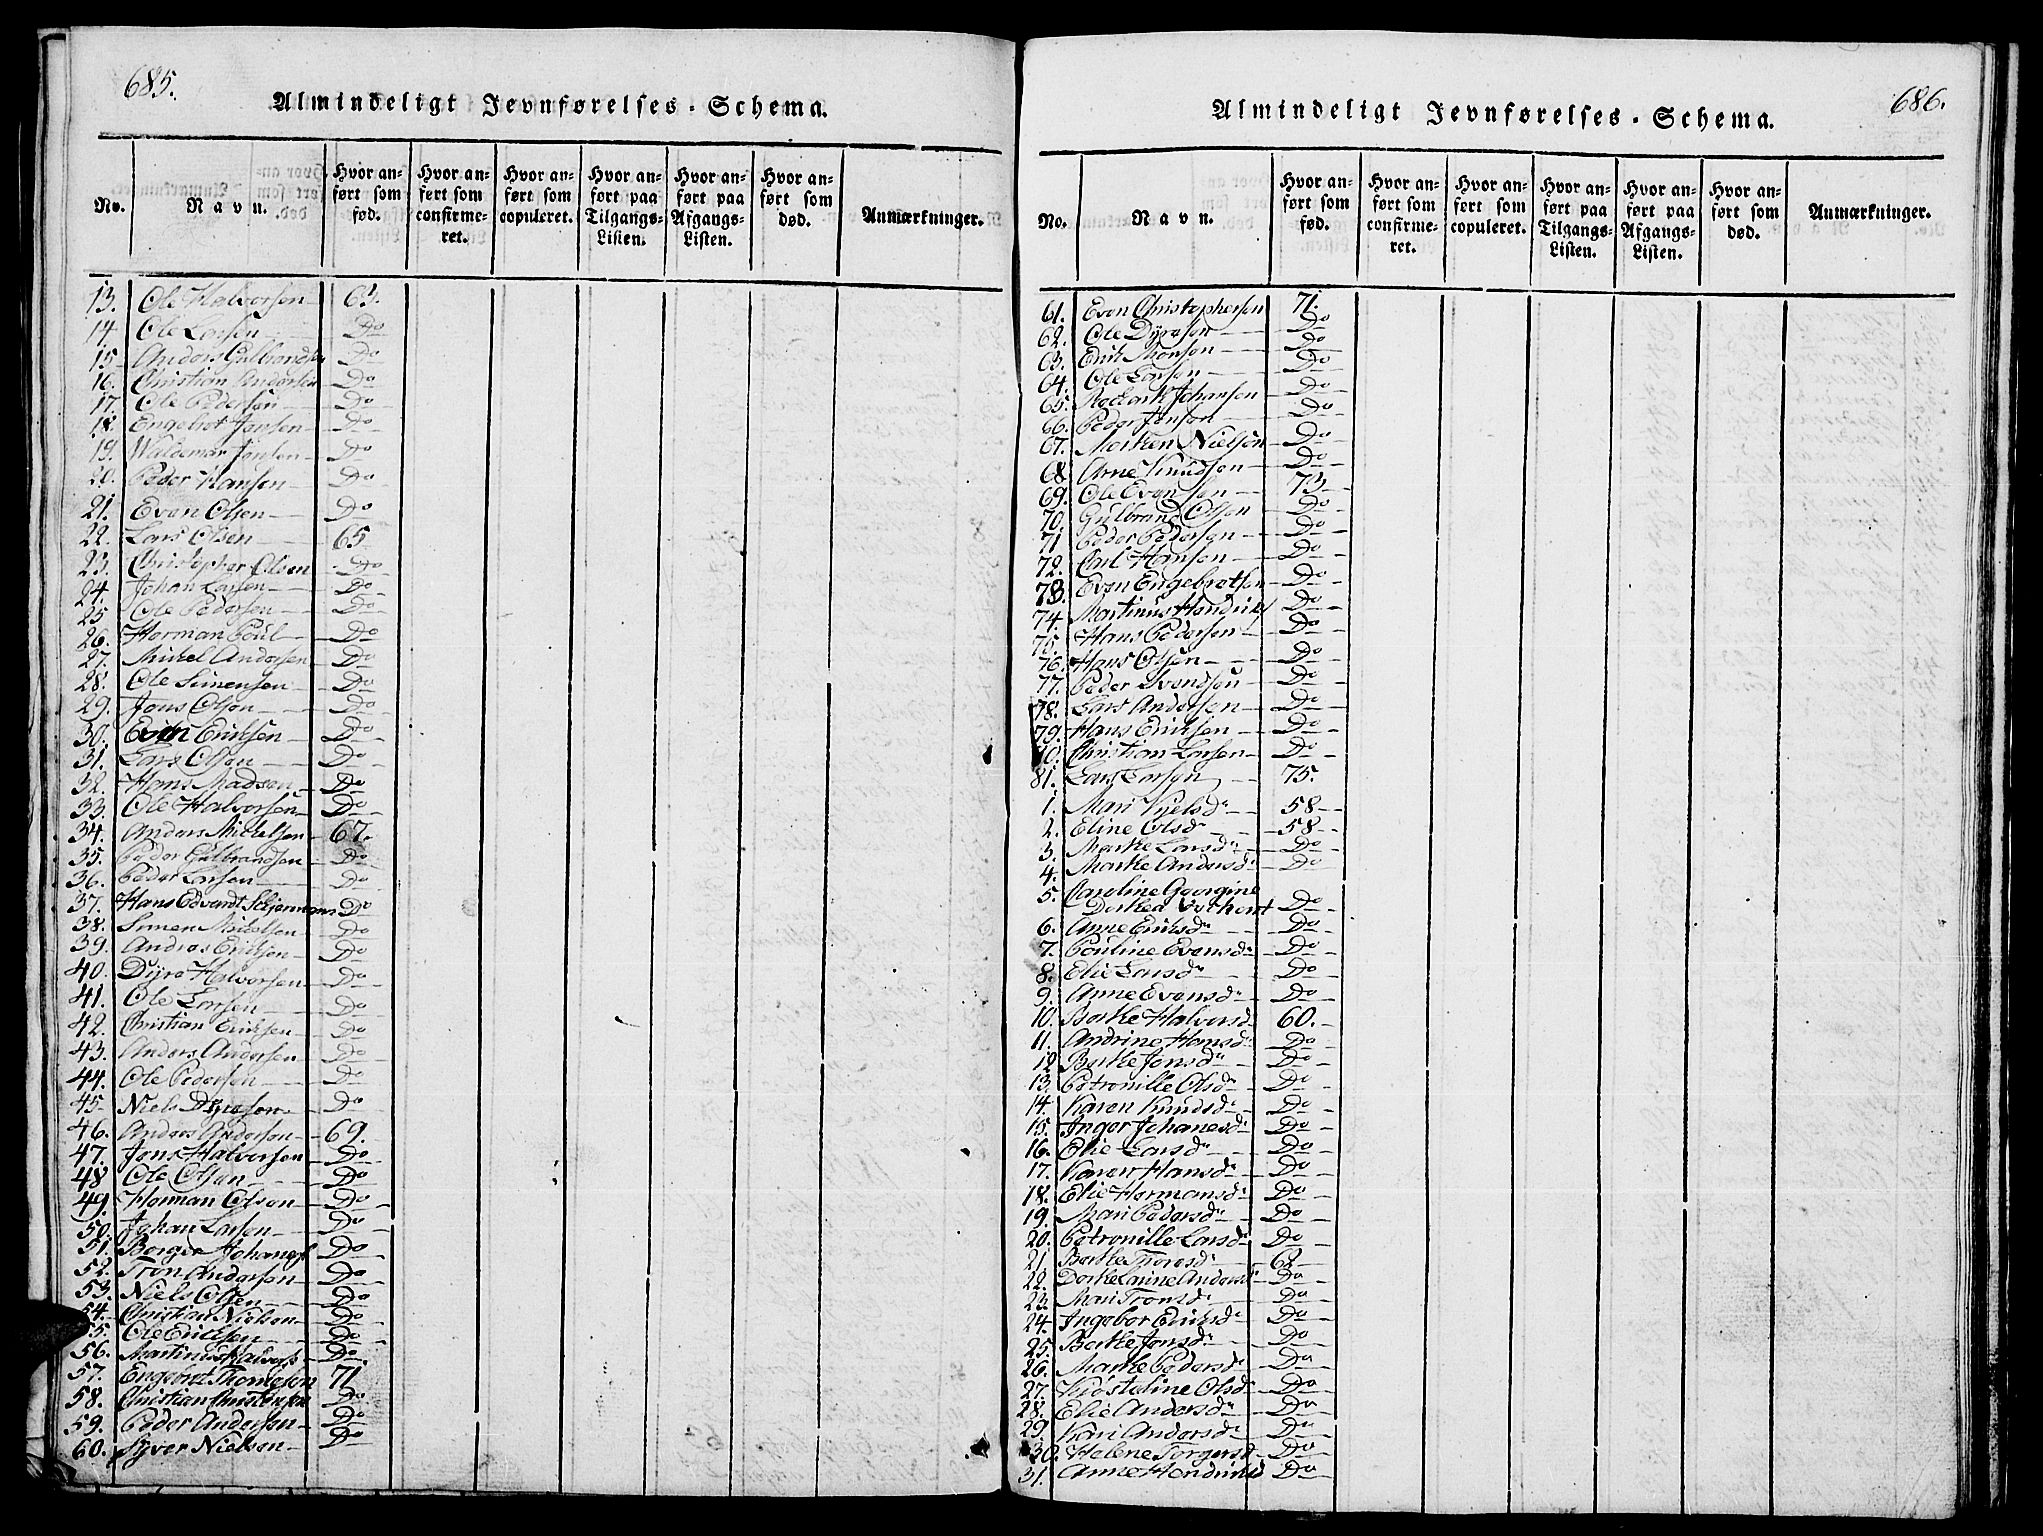 685.
Almindeligt Jevnførelses-Schema.
No. Navn. Hvor anført som fød. Hvor anført som confirmeret. Hvor anført som copuleret. Hvor anført paa Tilgangs-Listen. Hvor anført paa Afgangs-Listen. Hvor anført som død. Anmærkninger.
13. Ole Halvorsen 63.
14. Ole Larsen Do
15. Anders Gulbrandsen Do
16. Christian Andersen Do
17. Ole Pedersen Do
18. Engebret Jansen Do
19. Waldemar Jonsen Do
20. Peder Hansen Do
21. Even Olsen Do
22. Lars Olsen 65
23. Christopher Olsen Do
24. Johan Larsen Do
25 Ole Pedersen Do
26. Herman Poul Do
27. Mickel Andersen Do
28. Ole Simensen Do
29. Jens Olsen Do
30. Even Eriksen Do
31. Lars Olsen Do
32. Hans Madsen Do
33. Ole Halvorsen Do
34. Anders Mickelsen 67.
35. Peder Gulbrandsen Do
36. Peder Larsen Do
37. Hans Edvardt Do
38. Simen Mickelsen Do
39. Andreas Eriksen Do
40. Dyre Halvorsen Do
41. Ole Larsen Do
42. Christian Eriksen Do
43. Anders Andersen Do
44. Ole Pedersen Do
45 Niels Dyresen Do
46. Anders Andersen 69.
47. Jens Halvorsen Do
48 Ole Olsen Do
49. Herman Olsen Do
50. Johan Larsen Do
51. Borger Johanes Do
52. Tron Andersen Do
53. Niels Olsen Do
54. Christian Nielsen Do
55. Ole Eriksen Do
56. Martinus Halvors Do
57. Engebret Thomesen 71
58. Christian Christensen Do
59. Peder Andersen Do
60. Syver Nielsen Do
686.
Almindeligt Jevnførelses-Schema.
No. Navn. Hvor anført som fød. Hvor anført som confirmeret. Hvor anført som copuleret. Hvor anført paa Tilgangs-Listen. Hvor anført paa Afgangs-Listen. Hvor anført som død. Anmærkninger.
61. Even Christophersen 71.
62. Ole Dyresen Do
63. Erik Do
64. Ole Larsen Do
65. Johansen Do
66. Peder Jensen Do
67. Morken Nielsen Do
68 Arne Knudsen Do
69. Ole Evensen 73
70. Gulbrand Olsen Do
71 Peder Pedersen Do
72. Carl Hansen Do
73. Even Engebretsen Do
74. Martinus Hendriks Do
75. Hans Pedersen Do
76. Hans Olsen Do
77. Peder Svendsen Do
78. Lars Andersen Do
79. Hans Eriksen Do
80. Christian Larsen Do
81. Lars Larsen 75.
1. Mari Nielsdr 58
2. Eline Olsdr 58
3. Marthe Larsdr Do
4. Marthe Andersdr Do
5. Caroline Georgine
Dorthea Do
6. Anne Eriksdr Do
7. Pouline Evensdr Do
8. Elie Larsdr Do
9. Anne Evensdr Do
10. Berthe Halvorsd 60.
11. Andrine Hansdr Do
12 Berthe Jensdr Do
13. Petronille Olsdr Do
14. Karen Knudsdr Do
15. Inger Johanesdr Do
16. Elie Larsdr Do
17. Karen Hansdr Do
18. Elie Hermansdr Do
19. Mari Pedersdr Do
20. Petronille Larsdr Do
21. Berthe Toresdr 62
22. Dorthe Larine Andersdr Do
23. Mari Tronsdr Do
24. Ingebor Eriksdr Do
25. Berthe Jensdr Do
26. Marthe Pedersdr Do
27. Olsdr Do
28. Elie Andersdr Do
29. Kari Andersdr Do
30. Helene Torgersd Do
31. Anne Hendriksd Do